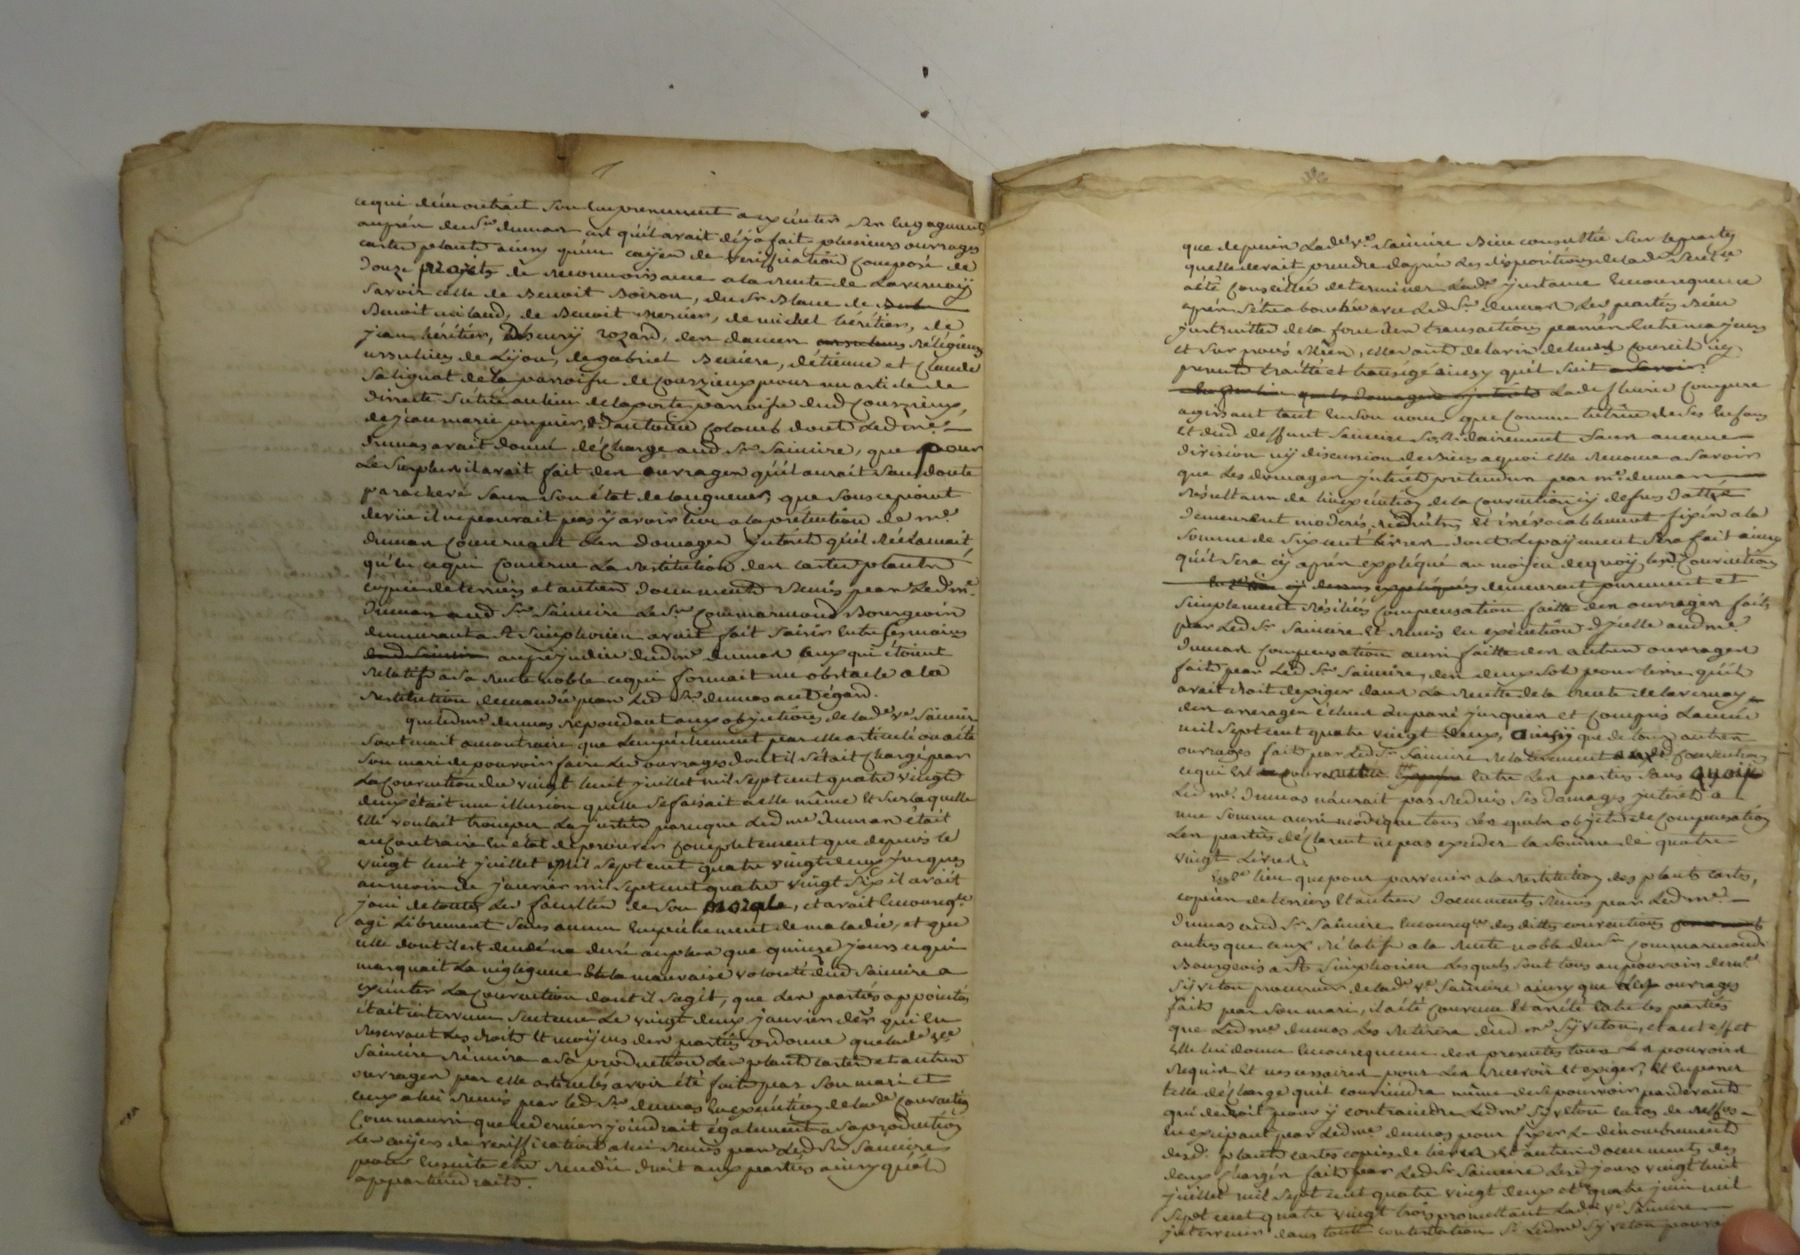 ce qui démontrait son empressement a exécuter ses engagements
auprès dud sr dumas est qu'il avait déja fait plusieurs ouvrages
cartes plants ainsy qu'un cayer de veriffication composé de
douze projets de reconnoissance a la rente de Lavernay
savoir celle de Benoit Boiron, du sr Blanc de
Benoit milaud, de Benoit mercier, de michel héritier, de
jean héritier, fleury rozard, des dames réligieuses
ursulines de Lyon, de gabriel Berriere, d'étienne et Claude
salignat de la parroisse de Courzieux pour un article de
directe situé au lieu de la porte parroisse dud Courzieux,
de jean marie et d'antoine Colomb dont led me
dumas avait donné décharge aud sr Saincire, que pour
Le surplus il avait fait des ouvrages qu'il aurait sans doute
parachevé sans son état de langueur, que sous ce point
de vue il ne pourrait pas y avoir lieu a la prétention de me
dumas concernant les domages interets qu'il réclamait,
qu'en ce qui concerne La restitution des cartes plants
copies de terriers et autres documents remis par Led me
dumas aud sr Saincire Le sr Commarmond Bourgeois
demeurant a St Simphorien avait fait saisir entre ses mains
au préjudice dud me dumas ceux qui étoient
relatifs a sa rente noble ce qui formait un obstacle a la
restitution demandée par led sr dumas a cet égard.
que led me dumas répondant aux objections de lade ve Saincire
soutenait au contraire que l'empéchement par elle articulé ou a été
son mari de pouvoir faire Les ouvrages dont il s'était chargé par
La Convention du vingt huit juillet mil sept cent quatre vingt
deux était une illusion qu'elle se faisait a elle même et sur laquelle
elle voulait tromper La justice parce que Led me dumas était
au Contraire en etat de prouver completement que depuis le
vingt huit juillet mil sept cent quatre vingt deux jusques
au mois de janvier mil sept cent quatre vingt six il avait
joui de toutes Les facultés de son morale, et avait en conseqce
agi Librement sans aucun empéchement de maladie, et que
celle dont il est décédé na duré au plus que quinze jours ce qui
marquait La négligence et la mauvaise volonté dud Saincire a
executer La convention dont il s'agit, que Les parties appointées
était intervenu sentence Le vingt deux janvier der qui en
reservant Les droits et moyens des parties ordonne que lade ve
Saincire remira a sa production Les plants cartes et autres
ouvrages par elle articulés avoir été faits par son mari et
ceux a lui remis par led sr dumas en execution de lade convention
comm'aussi que ce dernier joindrait également a sa production
Les cayers de veriffication a lui remis par Led sr Saincire
pour ensuite etre rendu droit aux parties ainsy qu'il
appartiendrait.
que depuis Lade ve Saincire Bien consultée sur le party
quelle devait prendre d'après Les dispositions de lade sentce
a été conseillée de terminer Lade instance en consequence
après s'etre abouchée avec Led sr dumas Les parties Bien
instruittes de la force des transactions passées entre majeurs
et sur procès même, elles ont de l'avis de leurs conseils icy
présents traitté et transigé ainsy qu'il suit a savoir
Lade fleurie Compere
agissant tant en son nom que comme tutrice de ses enfans
et dud deffunt Saincire solidairement sans aucune
division ny discussion de Biens a quoi elle renonce a savoir
que Les domages interets prétendus par me dumas
résultants de linexécution de la Convention cy dessus dattée
demeurent moderés, réduits et irrévocablement fixés a la
somme de six cent livres dont Le payement sera fait ainsy
qu'il sera cy après expliqué au moyen de quoy lesd Conventions
cy dessus expliquées demeurent purement et
simplement résiliées compensation faitte des ouvrages faits
par Led sr Saincire et remis en execution d'icelle aud me
dumas compensation aussi faitte des autres ouvrages
faits par Led sr Saincire, des deux sols pour livre qu'il
avait droit dexiger dans La recette de la rente de lavernay
des arrerages échus du passé jusques et compris L'année
mil sept cent quatre vingt deux, ainsy que de tous autres
ouvrages faits par Led sr Saincire relativement auxd Conventions
ce qui est entre Les parties sans quoy
Led me dumas n'aurait pas reduit ses domages interets a
une somme aussi modique tous Les quels objets de compensation
Les parties déclarent ne pas exceder la somme de quatre
vingt Livres.
lieu que pour parvenir a la restitution des plants cartes,
copies de terriers et autres documents remis par Led me
dumas aud sr Saincire en conseqce des dittes conventions
autres que ceux rélatifs a la rente noble du sr Commarmond
Bourgeois a St Simphorien Lesquels sont tous au pouvoir de me
Syveton procureur de lade ve Saincire ainsy que Les ouvrages
faits par son mari, il a été convenu et arrété entre Les parties
que Led me dumas Les retirera dud me Syveton, et a cet effet
elle lui donne en consequence des presentes tous Les pouvoirs
requis et necessaires pour Les recevoir et exiger, et en passer
telle décharge qu'il conviendra même de se pourvoir par devant
qui de droit pour y contraindre Led me Syveton en cas de reffus
en excipant par Led me dumas pour fixer Le dénombrement
desd. plants cartes copies de terriers et autres documents des
deux chargés faits par Led sr Saincire Lesd jours vingt huit
juillet mil sept cent quatre vingt deux et quatre juin mil
sept cent quatre vingt trois promettant Lade ve Saincire
intervenir dans toute contestation si Led me Syveton